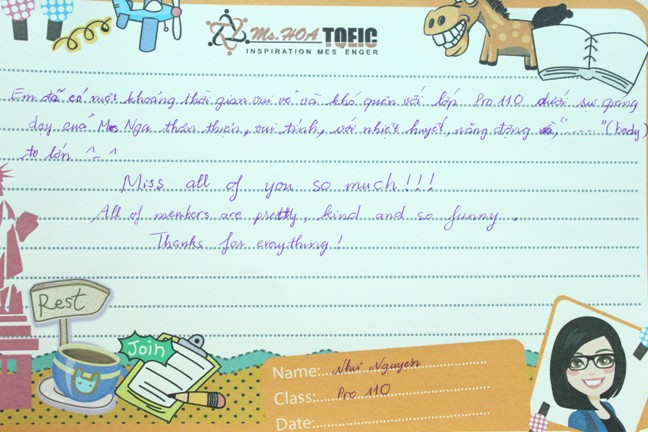 Ms.HOA TOEIC
INSPIRATION MESSENGER
Em đã có một khoảng thời gian vui vẻ và khó quên với lớp Pro 110 dưới sự giảng
dạy của Ms Nga thân thiện, vui tính, với nhiệt huyết, năng động và "....." (body)
to lớn ^_^
Miss all of you so much!!!
All of members are pretty, kind and so funny.
Thanks for everything!
Rest
Join
Name: Như Nguyen
Class: Pro 110
Date: